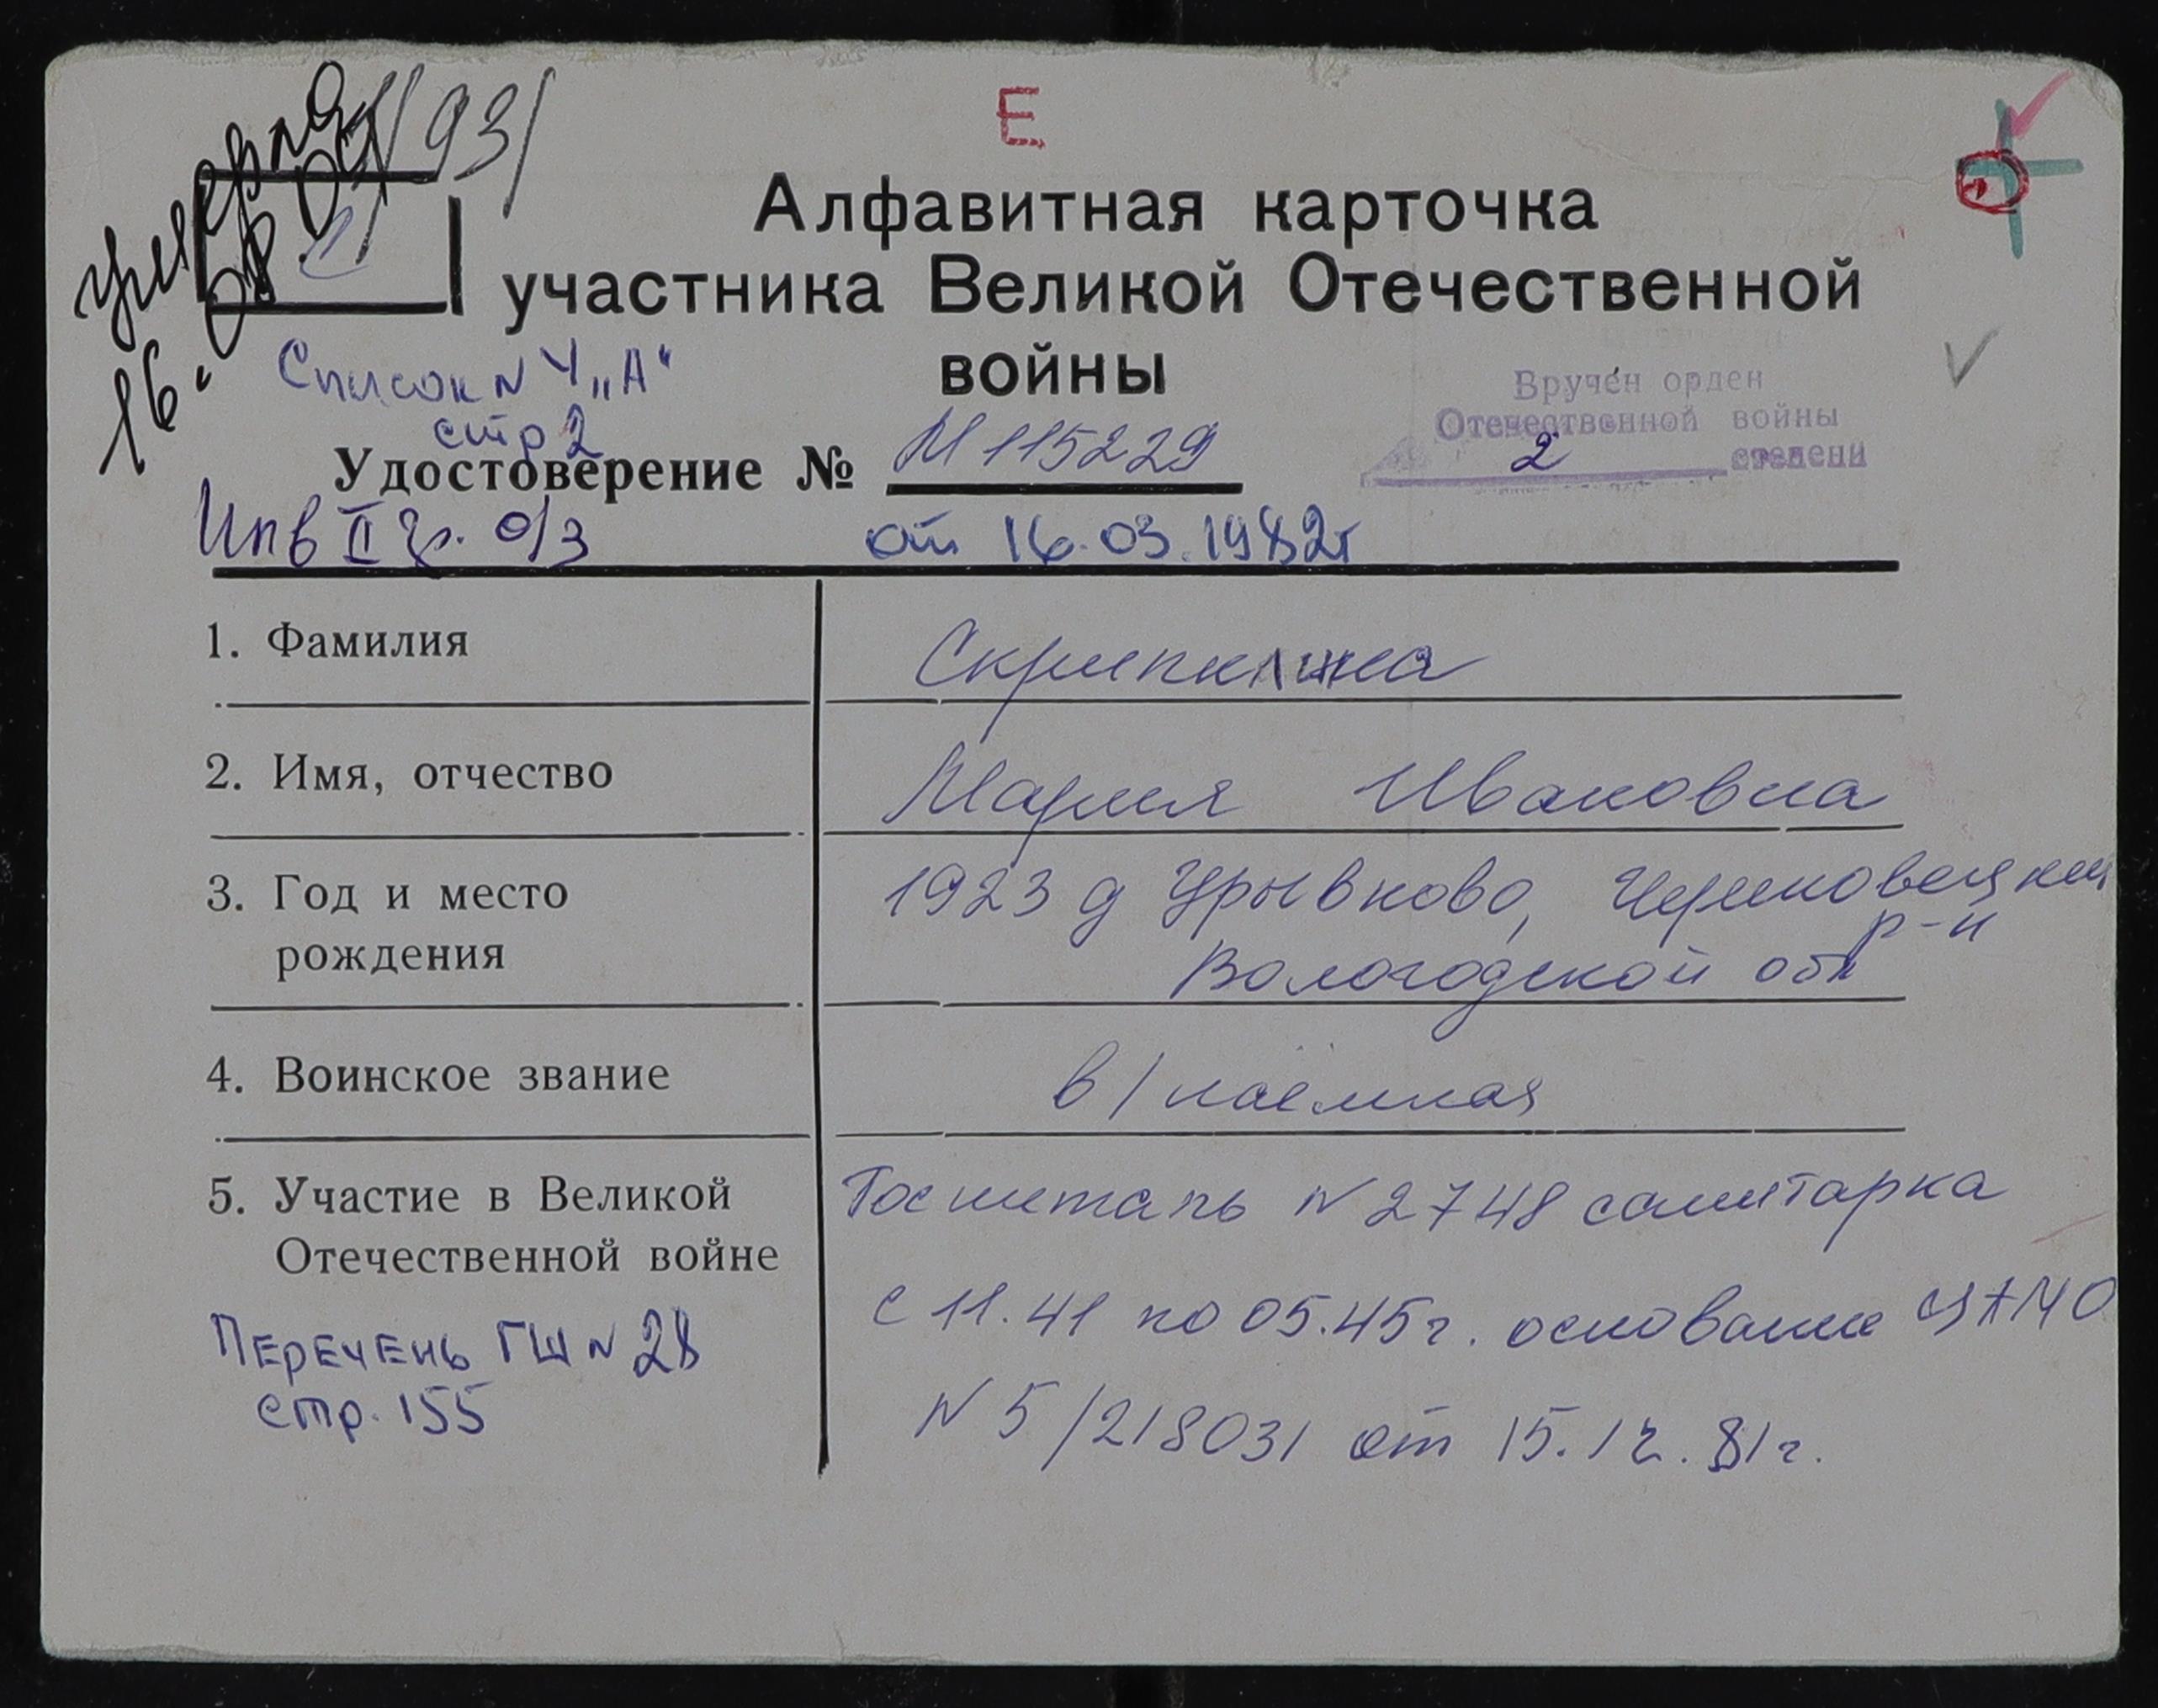 Е
умерла
/93/
16.08.
1
Алфавитная карточка
участника Великой Отечественной
войны
Список N 4 „А“
стр 2
Вручен орден
Отечественной войны
2 степени
Удостоверение № М 115229
Инв II гр. о/з
от 16.03.1982г
1. Фамилия
2. Имя, отчество
Мария Ивановна
3. Год и место
рождения
1923 д Урывково,
р-н
Вологодской обл
4. Воинское звание
в/наёмная
5. Участие в Великой
Отечественной войне
Госпиталь N 2748 санитарка
с 11.41 по 05.45г. основание ЦАМО
N 5/218031 от 15.12.81г.
Перечень ГШ N 28
стр. 155